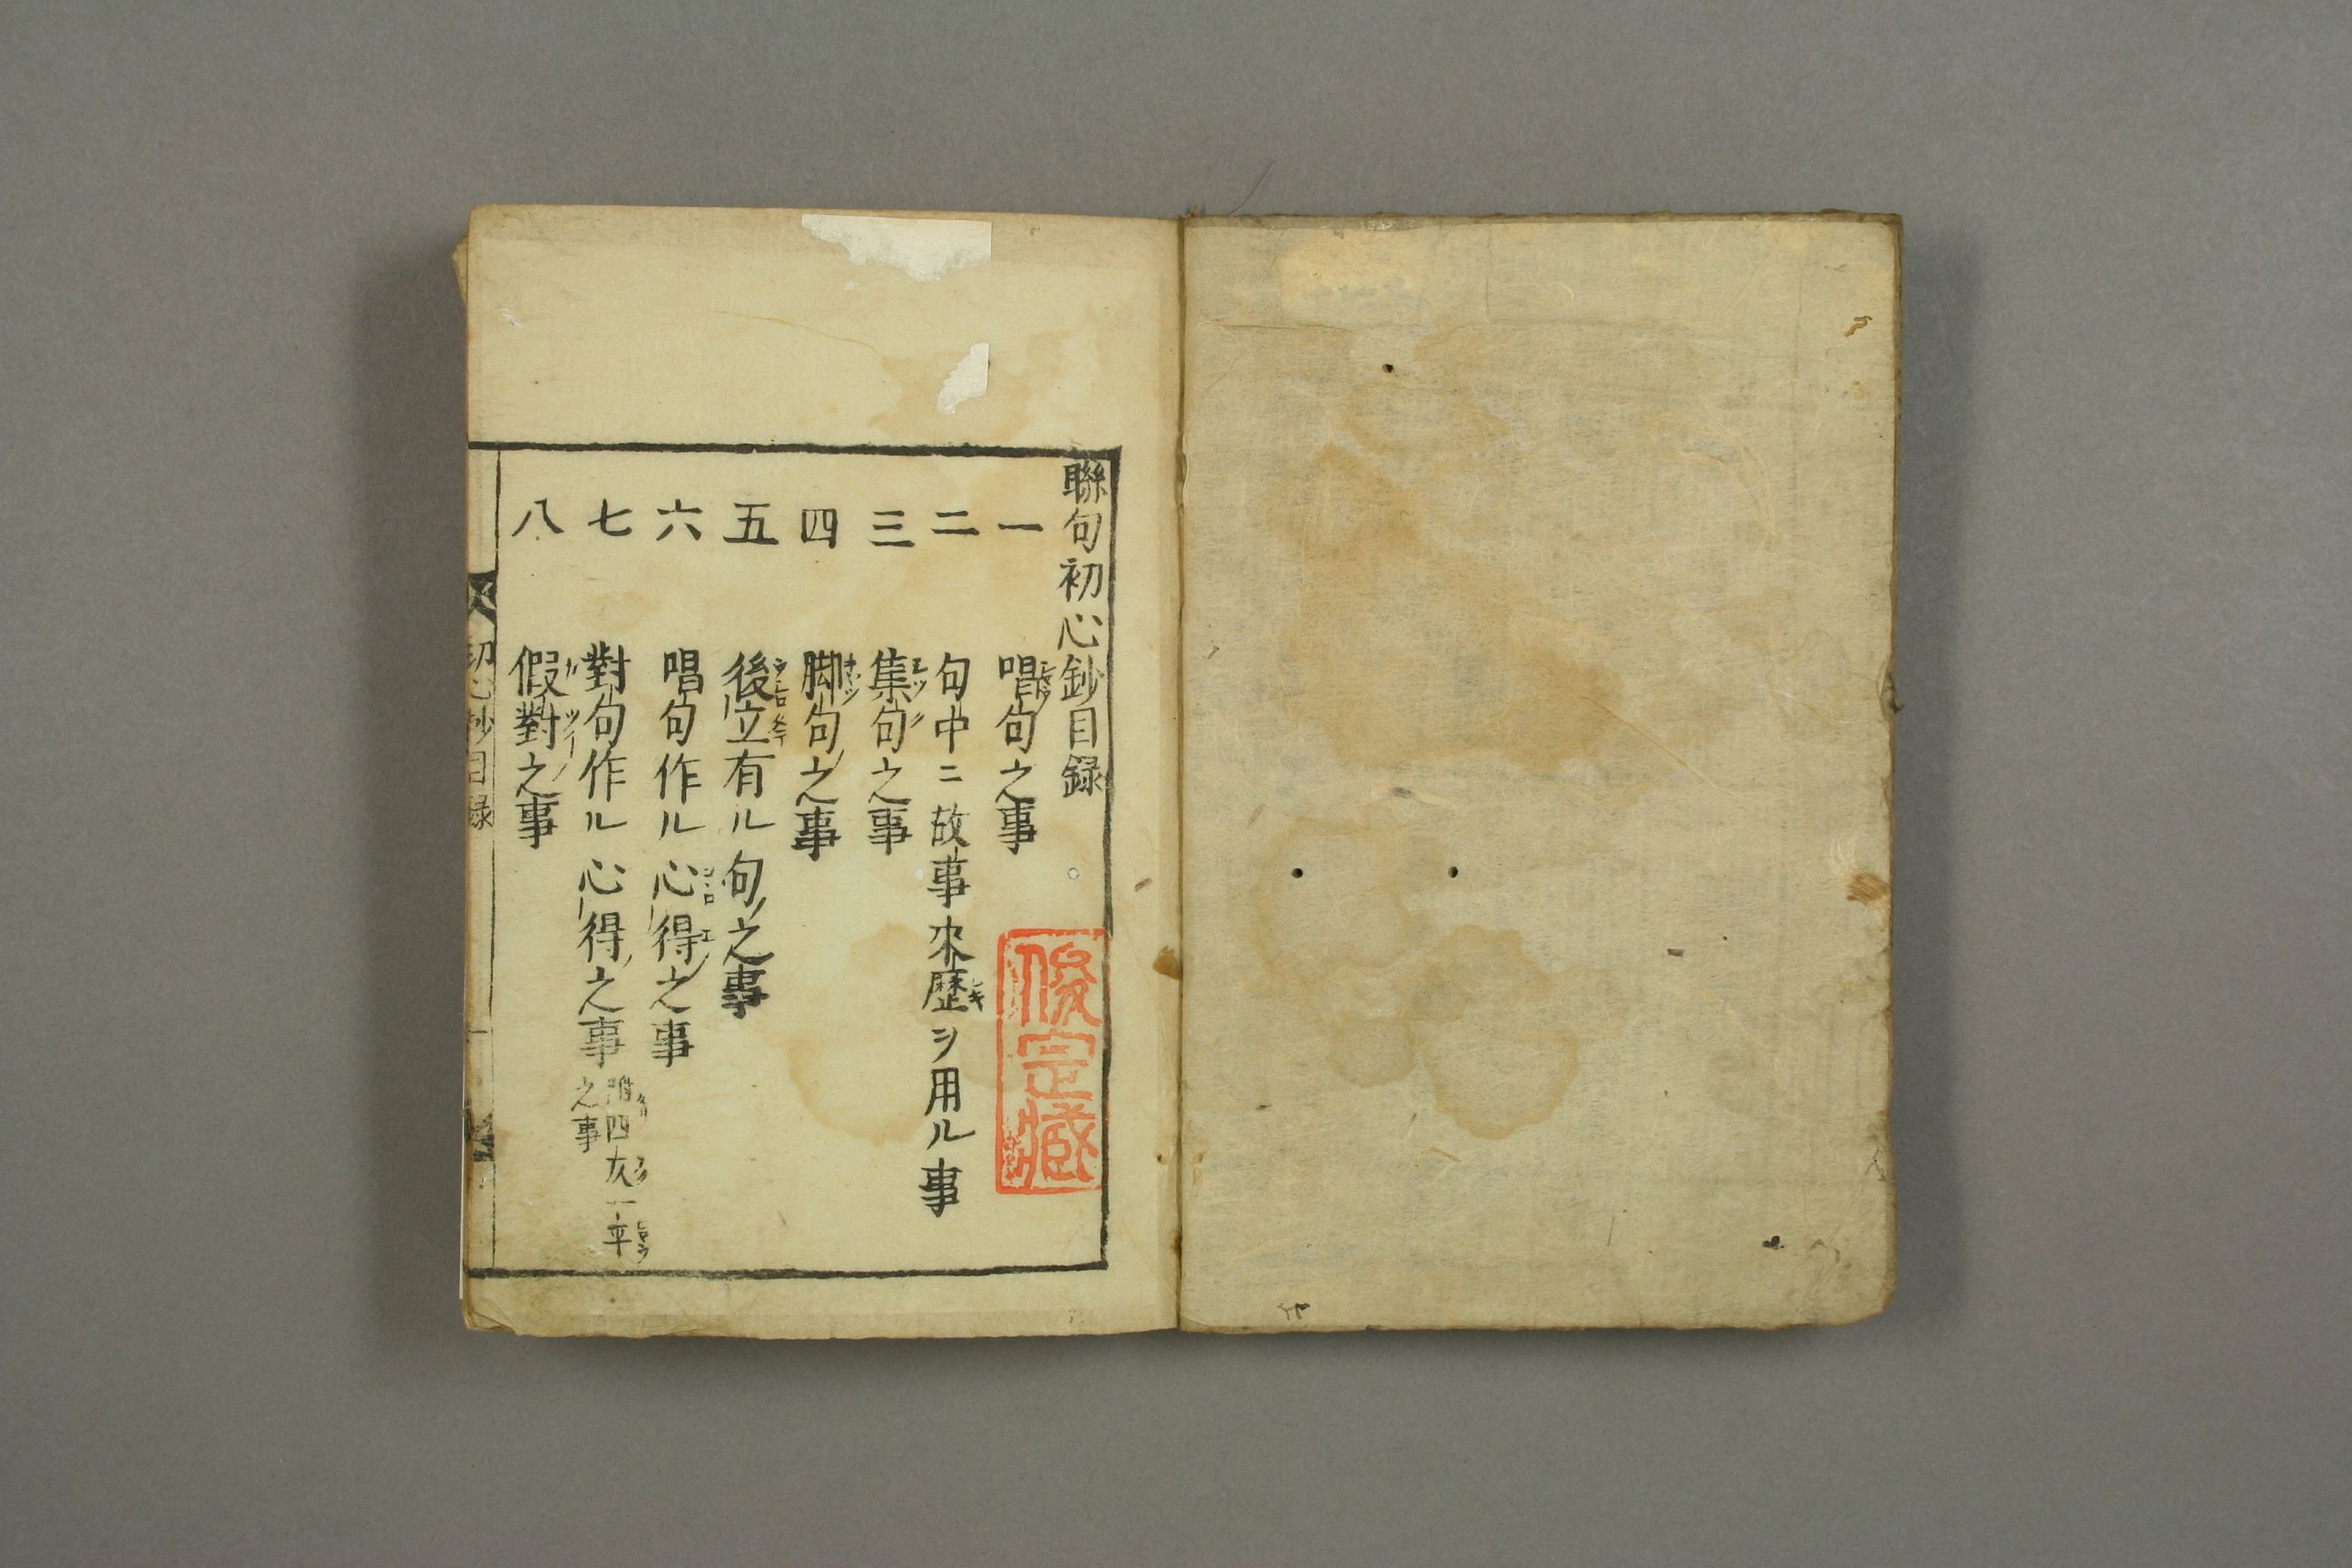 聯句初心鈔目録
一 唱句之事
二 句中ニ故事来歴ヲ用ル事
三 集句之事
四 脚句之事
五 後立有ル句之事
六 唱句作ル心得之事
七 對句作ル心得之事
四
一平
之事
八 假對之事
初心抄目録
俊定藏